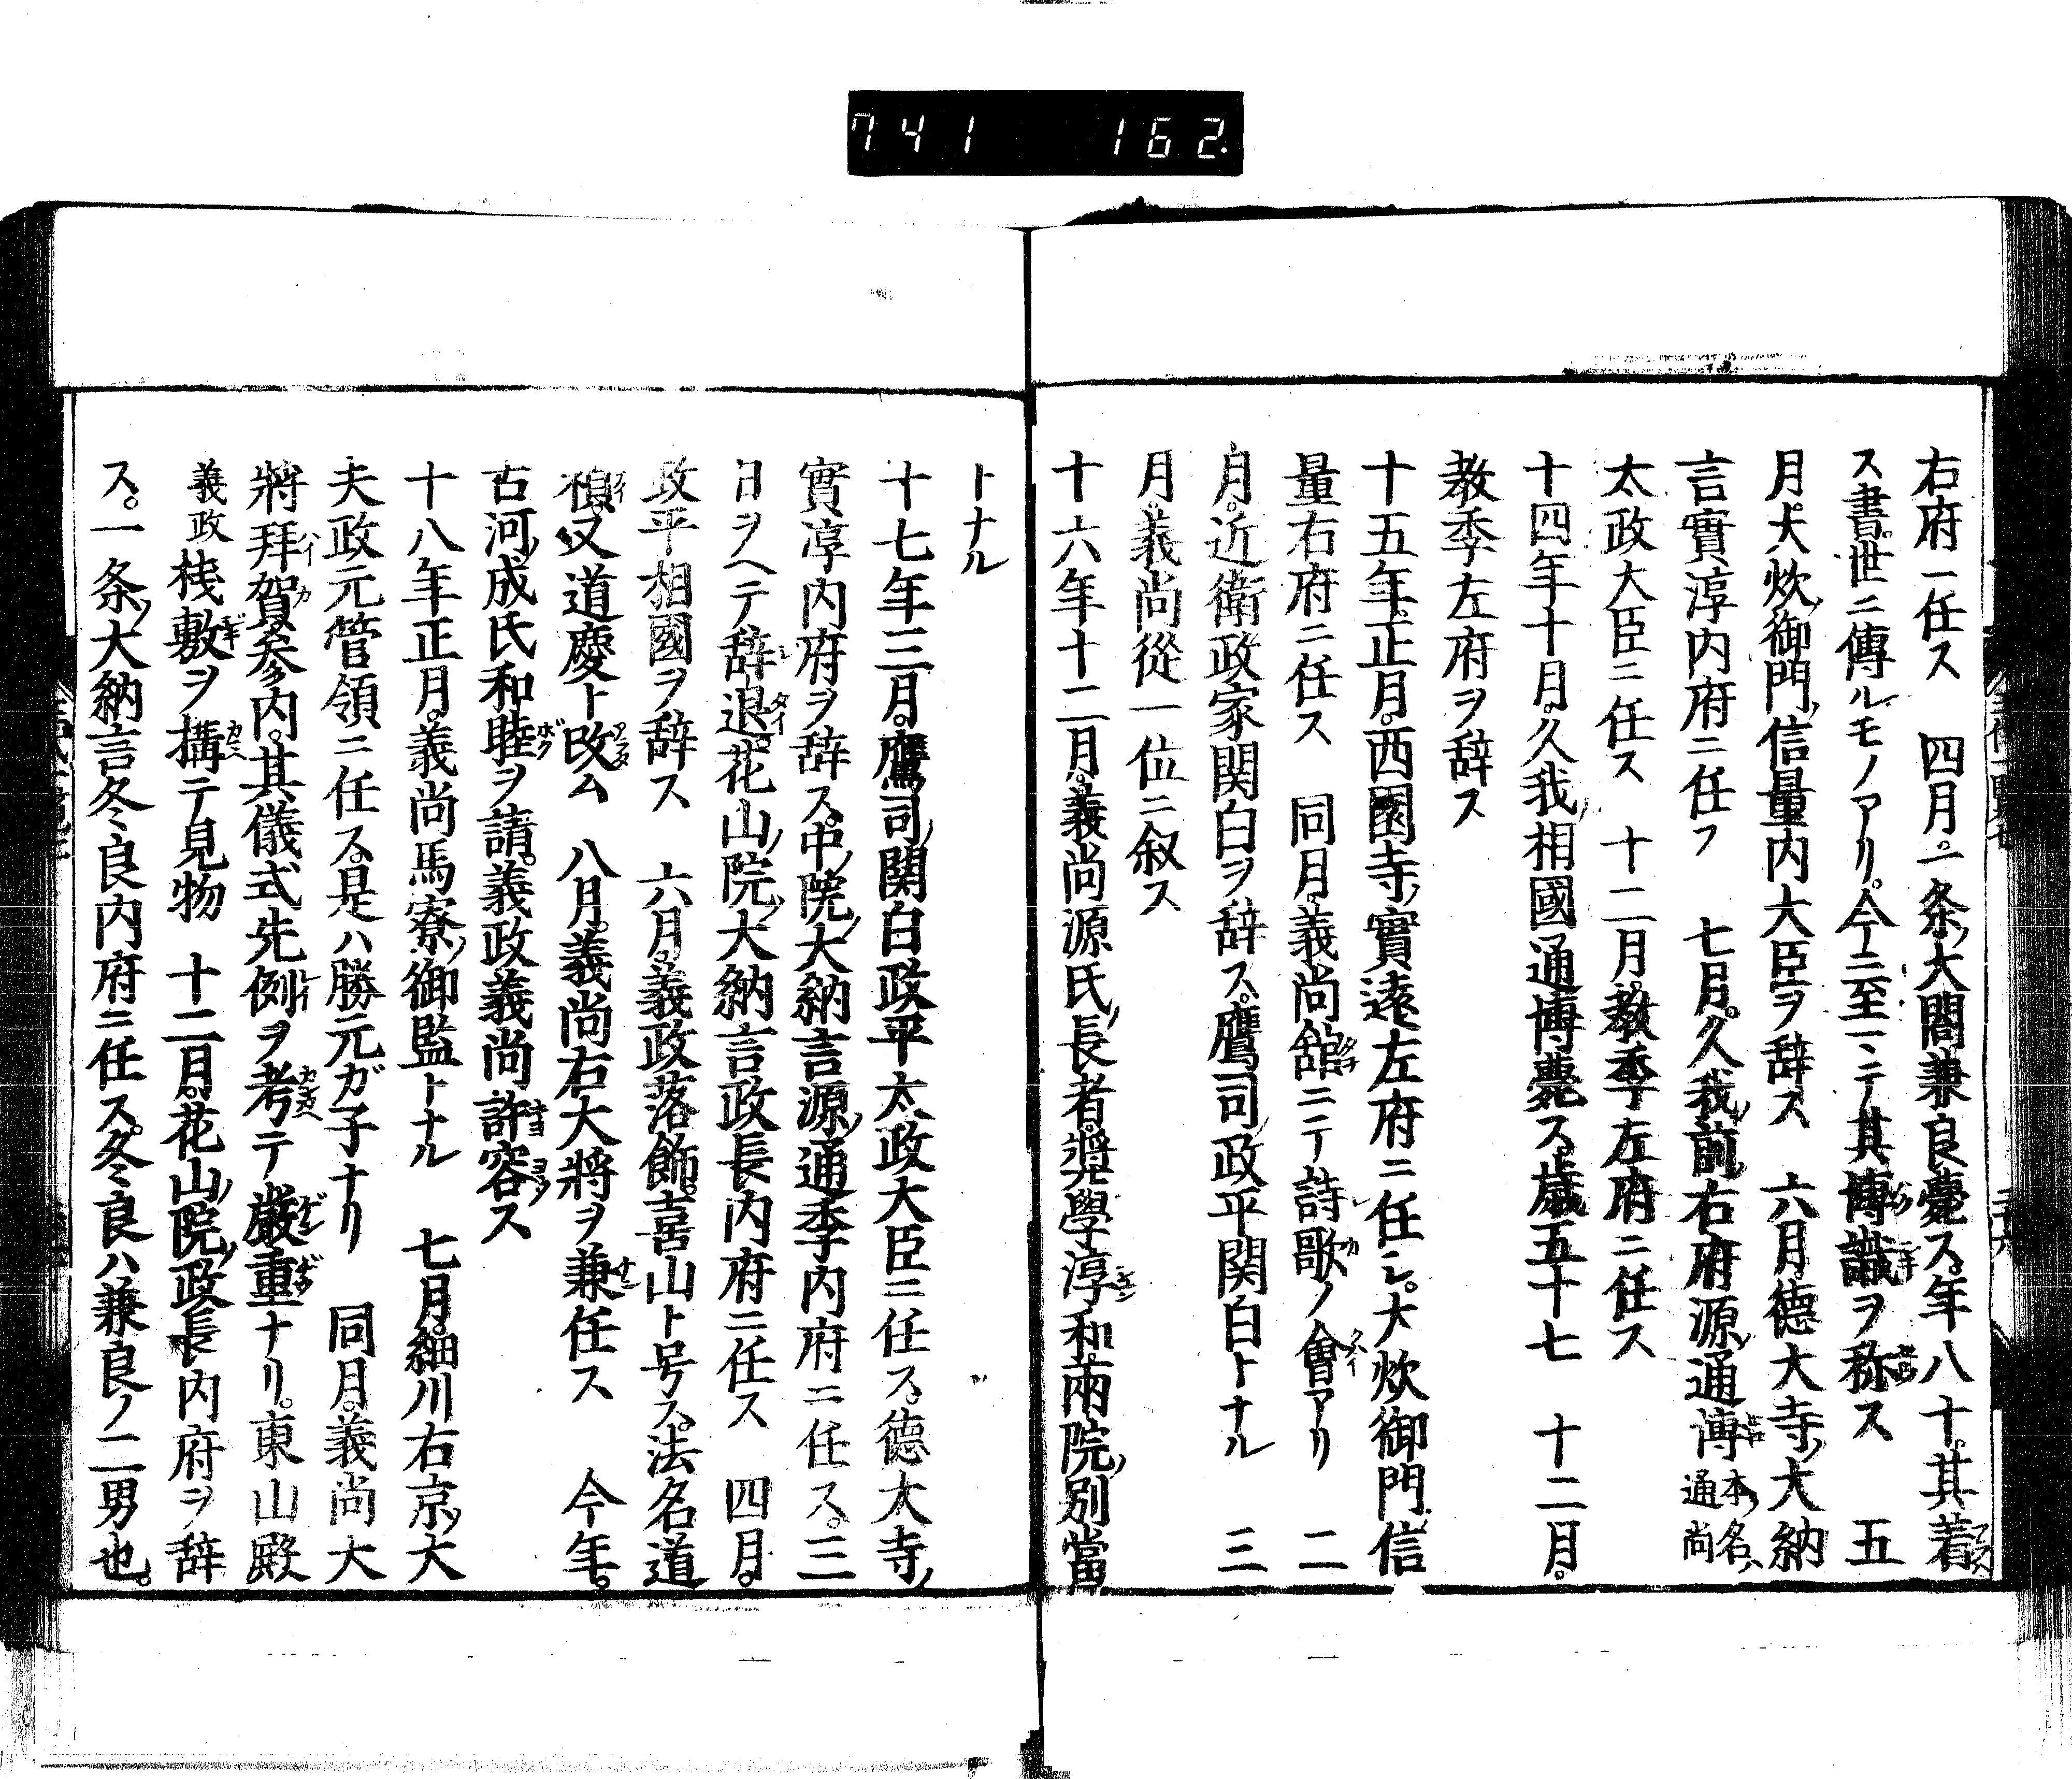 741 162.
右府ニ任ス 四月。一条ノ大閤兼良薨ス。年八十。其着
ス書。世ニ傳ルモノアリ。今ニ至マテ其博識ヲ称ス 五
月。大炊ノ御門ノ信量内大臣ヲ辞ス 六月。德大寺ノ大納
言實淳内府ニ任ス 七月。久我ノ前ノ右府源ノ通博本ノ名ハ通尚
太政大臣ニ任ス 十二月。教季左府ニ任ス
十四年十月。久我ノ相國通博薨ス。歳五十七 十二月。
教季左府ヲ辞ス
十五年。正月。西園寺ノ實遠左府ニ任シ。大炊御門ノ信
量右府ニ任ス 同月。義尚舘ニテ詩歌ノ會アリ 二
月。近衛政家関白ヲ辞ス。鷹司ノ政平関白トナル 三
月。義尚從一位ニ叙ス
十六年十二月。義尚源氏ノ長者。奬學淳和。兩院ノ別當
トナル
十七年三月。鷹司ノ関白政平太政大臣ニ任ス。德大寺ノ
實淳内府ヲ辞ス。中ノ院ノ大納言源ノ通季内府ニ任ス。三
日ヲヘテ辞退。花山ノ院ノ大納言政長内府ニ任ス 四月。
政平相國ヲ辞ス 六月。義政落飾。喜山ト号ス。法名道
禎。又道慶ト改ム 八月。義尚右大將ヲ兼任ス 今年。
古河ノ成氏和睦ヲ請。義政義尚許容ス
十八年正月。義尚馬寮ノ御監トナル 七月。細川右京ノ大
夫政元管領ニ任ス。是ハ勝元ガ子ナリ 同月。義尚大
將拜賀参内。其儀式先例ヲ考テ嚴重ナリ。東山殿
義政桟敷ヲ構テ見物 十二月。花山ノ院ノ政長内府ヲ辞
ス。一条ノ大納言冬良内府ニ任ス。冬良ハ兼良ノ二男也。